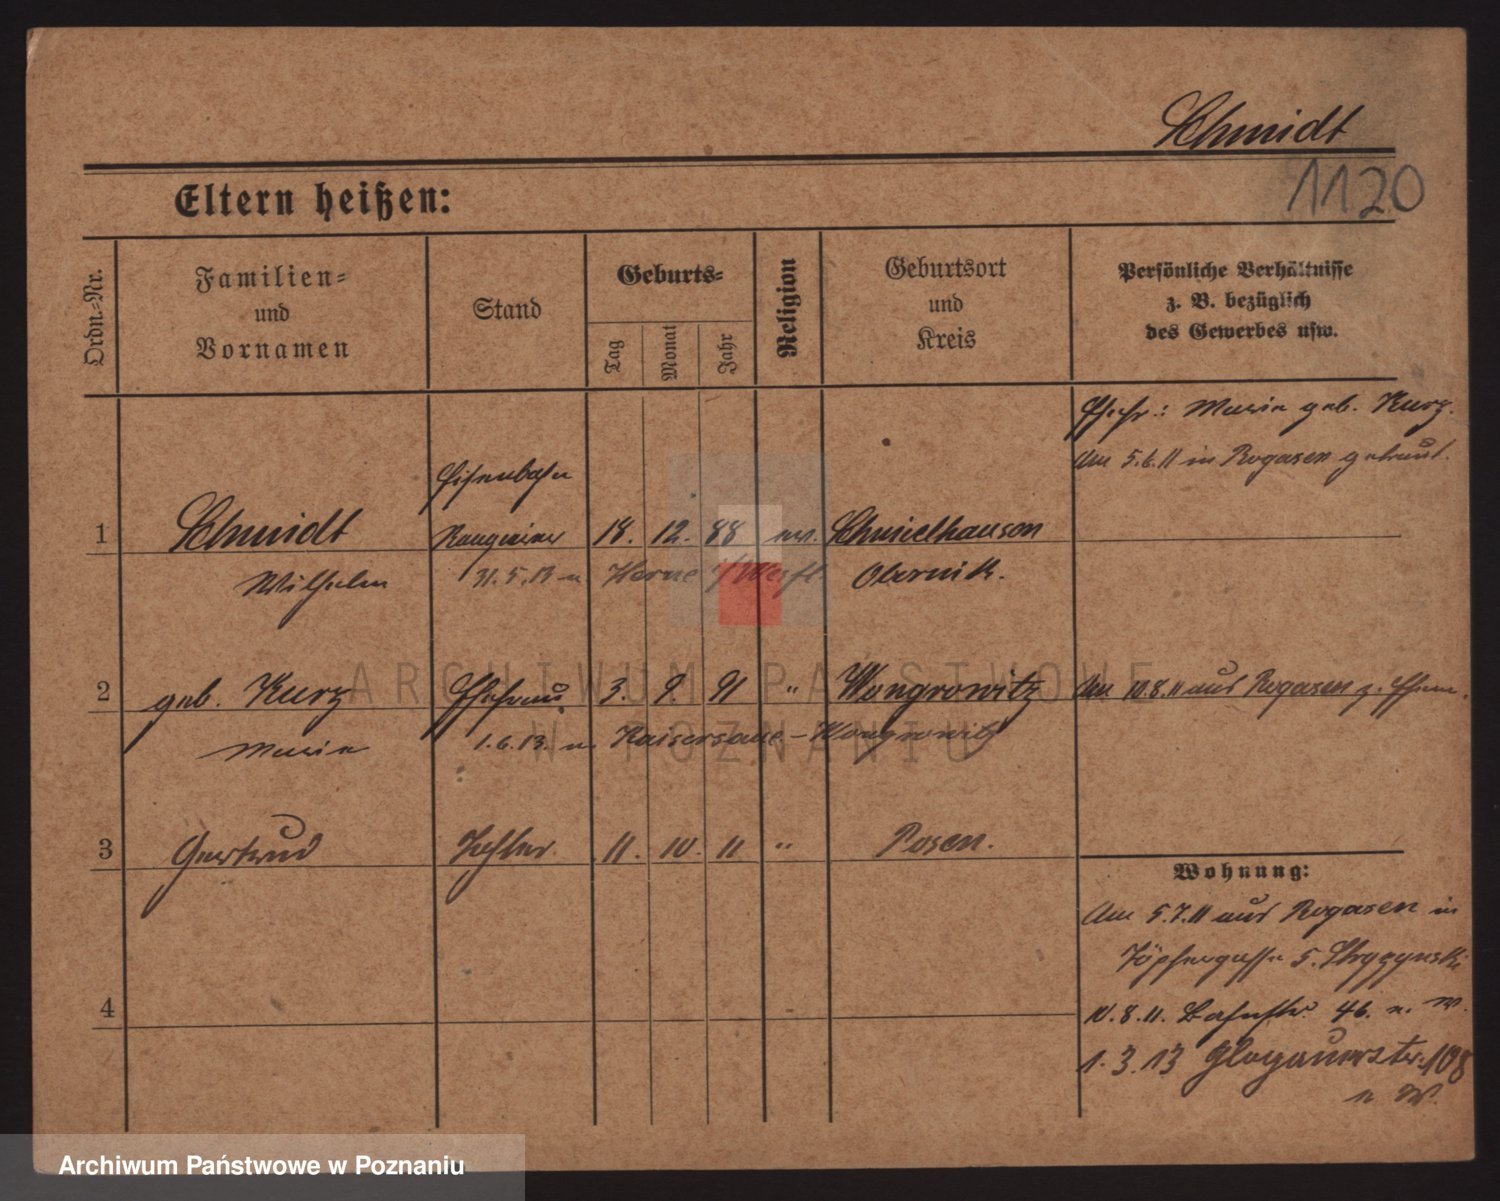 Schmidt
1120
Eltern heißen:
Ordn.=Nr.
Familien=
und
Vornamen
Stand
Geburts=
Tag
Monat
Jahr
Religion
Geburtsort
und
Kreis
Persönliche Verhältnisse
z. B. bezüglich
des Gewerbes usw.
Ehefr.: Marie geb. Kurz.
Am 5.6.11 in Rogasen getraut.
Eisenbahn
1 Schmidt 18. 12. 88 ev.
Wilhelm 31.5.13 n Herne i/Westf. Obernik.
2 geb. Kurz Ehefrau 3. 9. 91 " Wongrowitz Am 10.8.11 aus Rogasen z. Ehem.
Marie 1.6.13. n. Kaisersaue - Wongrowitz
3 Gertrud Tochter. 11. 10. 11 " Posen.
Wohnung:
Am 5.7.11 aus Rogasen in
Töpfergasse 5.
4
10.8.11. Bahnstr. 46. n. W.
1.3.13 Glogauerstr. 108
n W.
ARCHIWUM PAŃSTWOWE
W POZNANIU
Archiwum Państwowe w Poznaniu